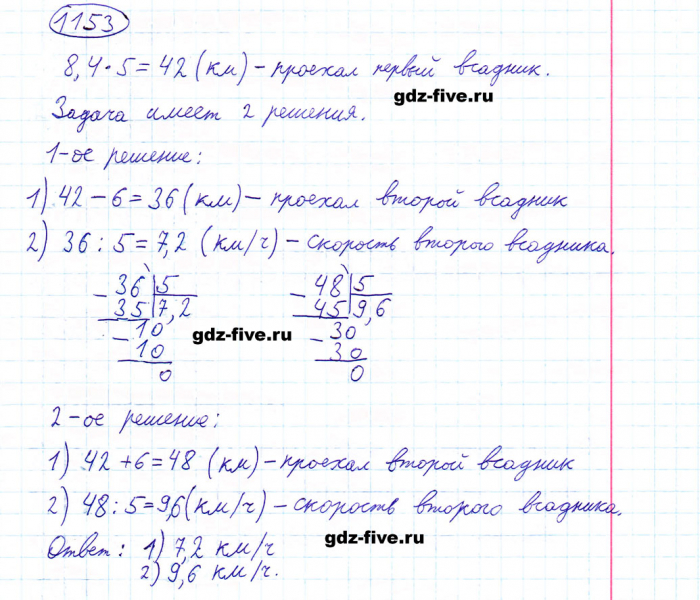 1153
8,4 · 5 = 42 (км) – проехал первый всадник.
gdz-five.ru
Задача имеет 2 решения.
1-ое решение:
1) 42 – 6 = 36 (км) – проехал второй всадник
2) 36 : 5 = 7,2 (км/ч) – скорость второго всадника.
– 36 | 5
35 | 7,2
– 10
10
0
– 48 | 5
45 | 9,6
– 30
30
0
gdz-five.ru
2-ое решение:
1) 42 + 6 = 48 (км) – проехал второй всадник
2) 48 : 5 = 9,6 (км/ч) – скорость второго всадника.
Ответ: 1) 7,2 км/ч
gdz-five.ru
2) 9,6 км/ч.